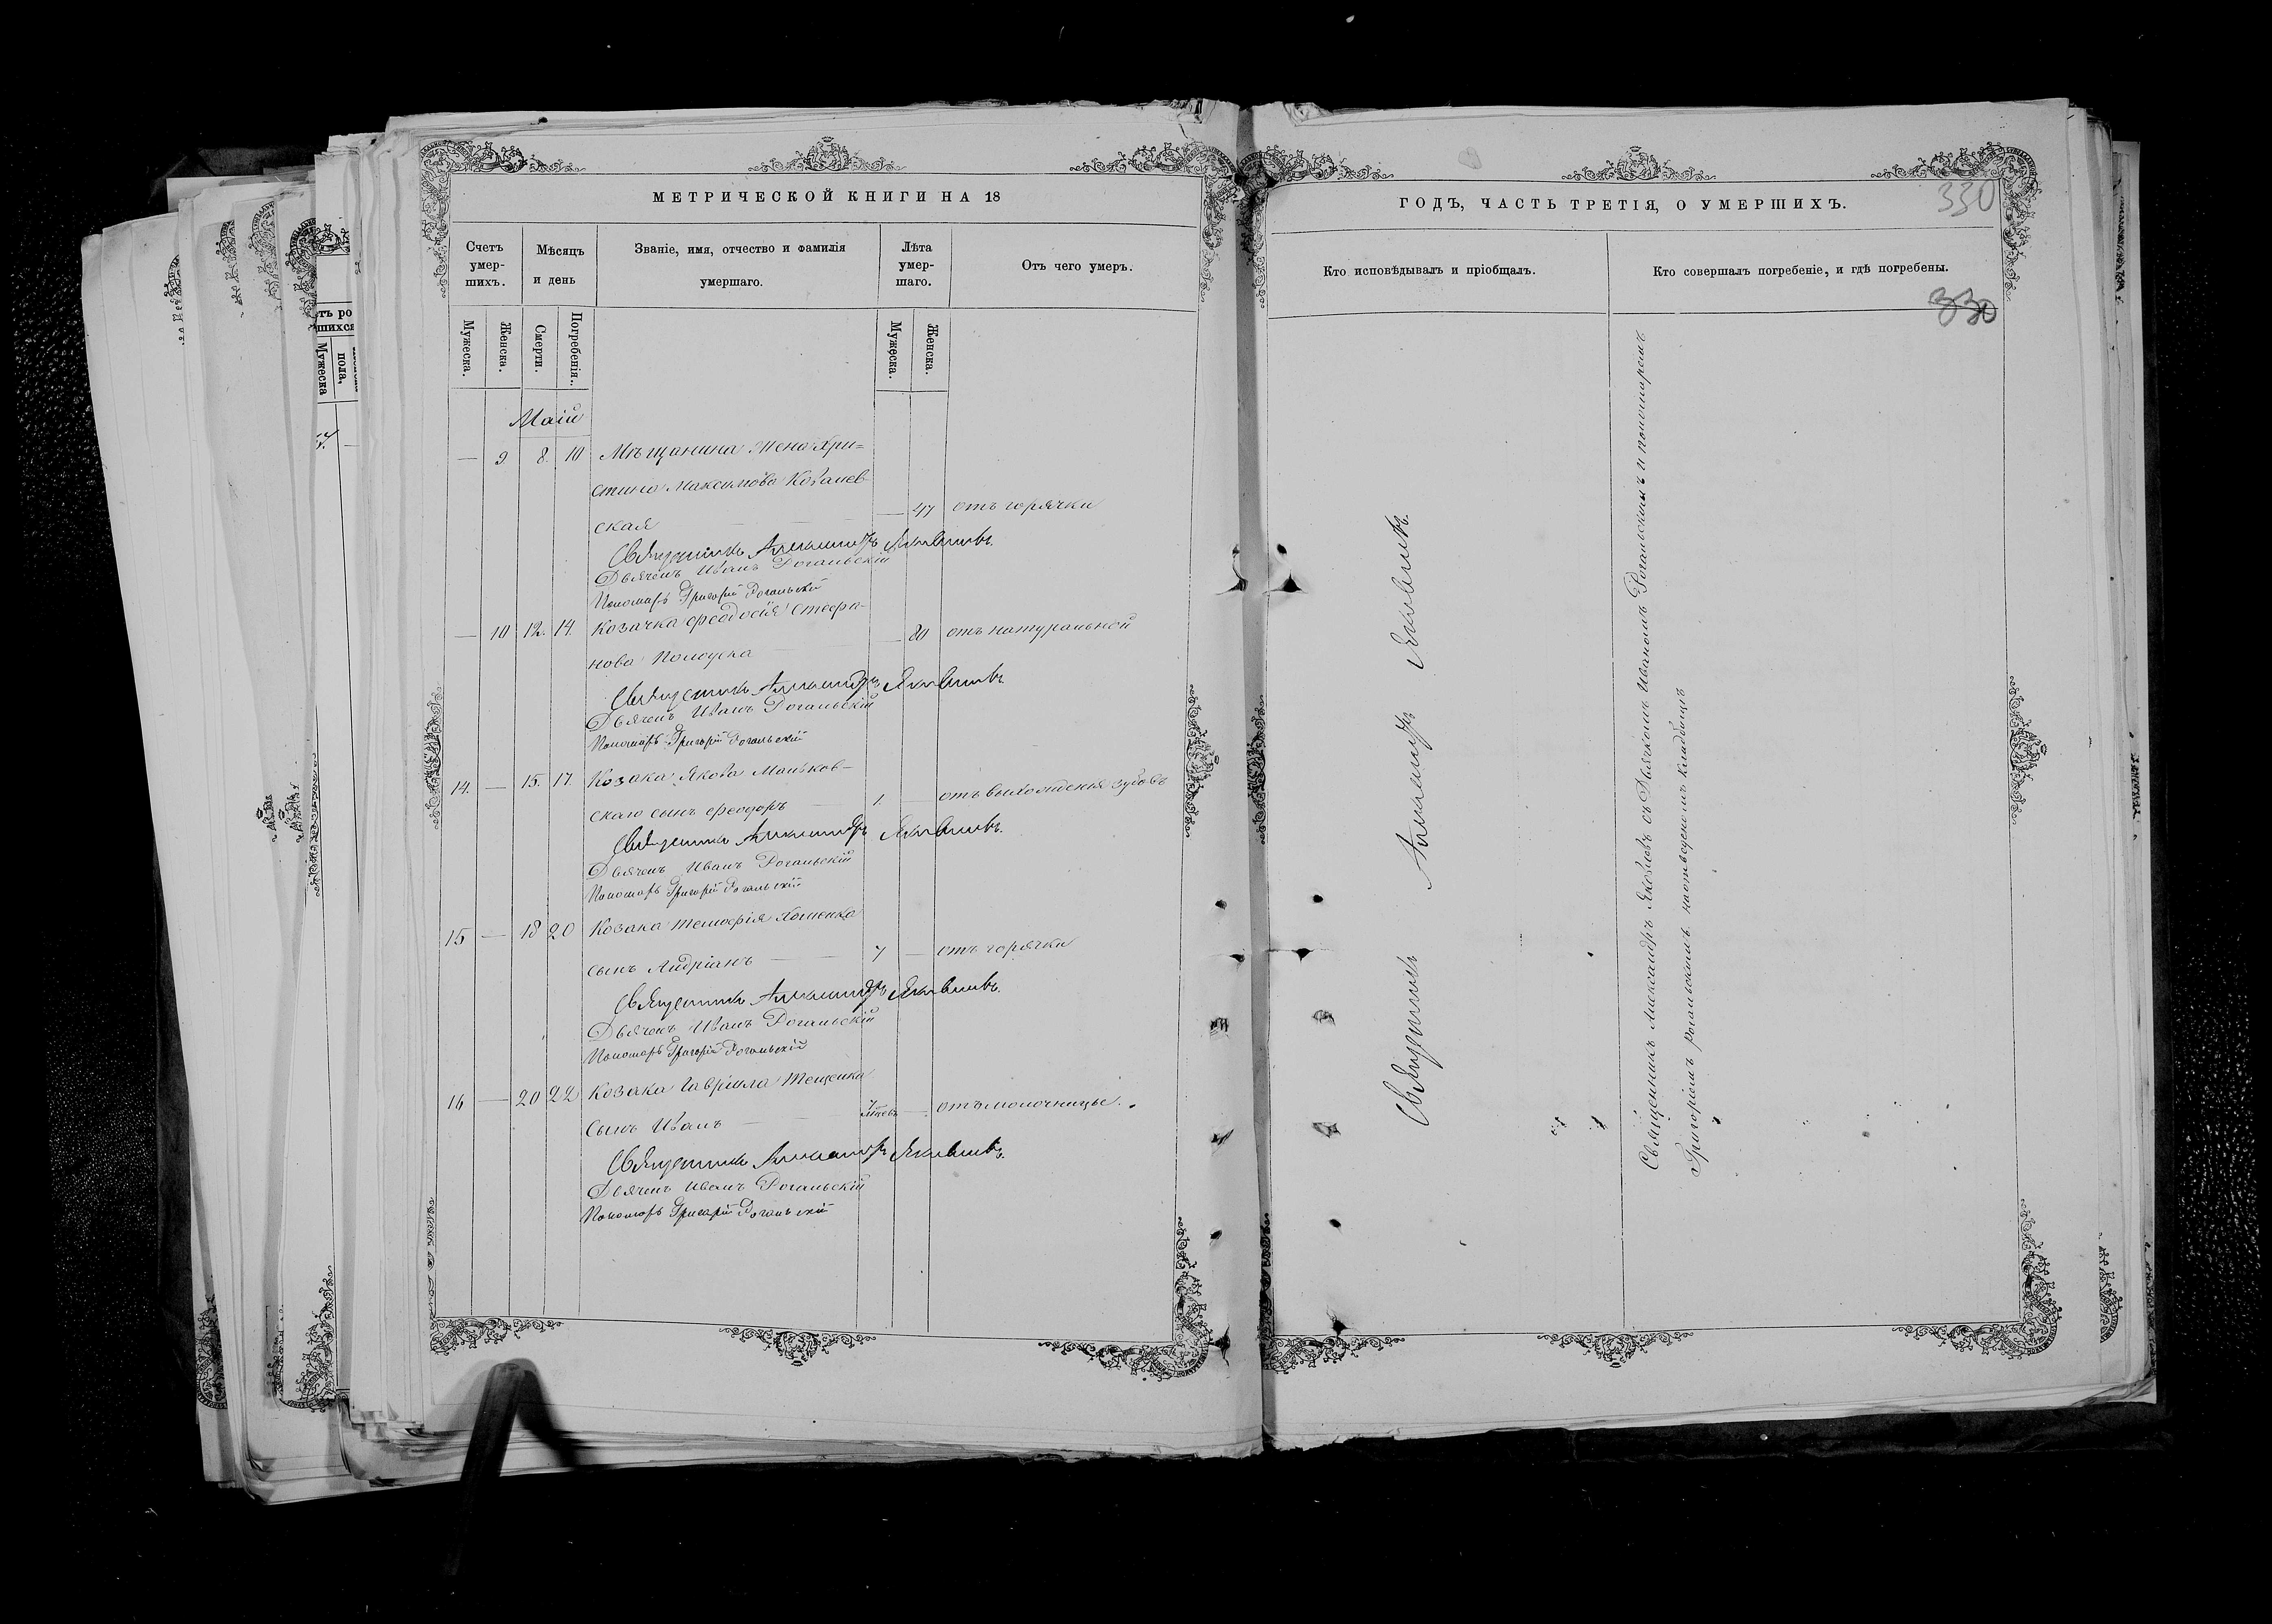 МЕТРИЧЕСКОЙ КНИГИ НА 18
Счетъ умер-шихъ.
Мѣсяцъ и день
Званіе, имя, отчество и фамилія умершаго.
Лѣта умер-шаго.
Отъ чего умеръ.
Мужеска.
Женска.
Смерти.
Погребенія.
Мужеска.
Женска.
Маій
— 9. 8. 10 Мѣщанина Жена Хри=
стина Максимова Коваlев-
ская — 47 отъ горячки
Священникъ Александръ Яковлевъ.
Дьячекъ Иванъ Рогальскій
Пономарь Григорій Рогальскій
— 10 12. 14. Козачка Феодосія Стефа-
нова — 80 отъ натуральной
Священникъ Александръ Яковлевъ.
Дьячекъ Иванъ Рогальскій
Пономарь Григорій Рогальскій
14. — 15. 17. Козака Якова Маньков-
скаго сынъ Феодоръ 1. — отъ выхожденія зубовъ
Священникъ Александръ Яковлевъ.
Дьячекъ Иванъ Рогальскій
Пономарь Григорій Рогальскій
15 — 18 20 Козака Хоменка
сынъ Андріанъ — 7 — отъ горячки
Священникъ Александръ Яковлевъ.
Дьячекъ Иванъ Рогальскій
Пономарь Григорій Рогальскій
16 — 20 22 Козака Гавріила Тещенка
сынъ Иванъ — — отъ молочницы.
Священникъ Александръ Яковлевъ.
Дьячекъ Иванъ Рогальскій
Пономарь Григорій Рогальскій
ГОДЪ, ЧАСТЬ ТРЕТІЯ, О УМЕРШИХЪ.
330
Кто исповѣдывалъ и пріобщалъ.
Кто совершалъ погребеніе, и гдѣ погребены.
330
Священникъ Александръ Яковлевъ.
Священникъ Александръ Яковлевъ съ Дьячкомъ Иваномъ Рогальскимъ и пономаремъ
Григоріемъ рогальскимъ на отведеномъ кладбищѣ